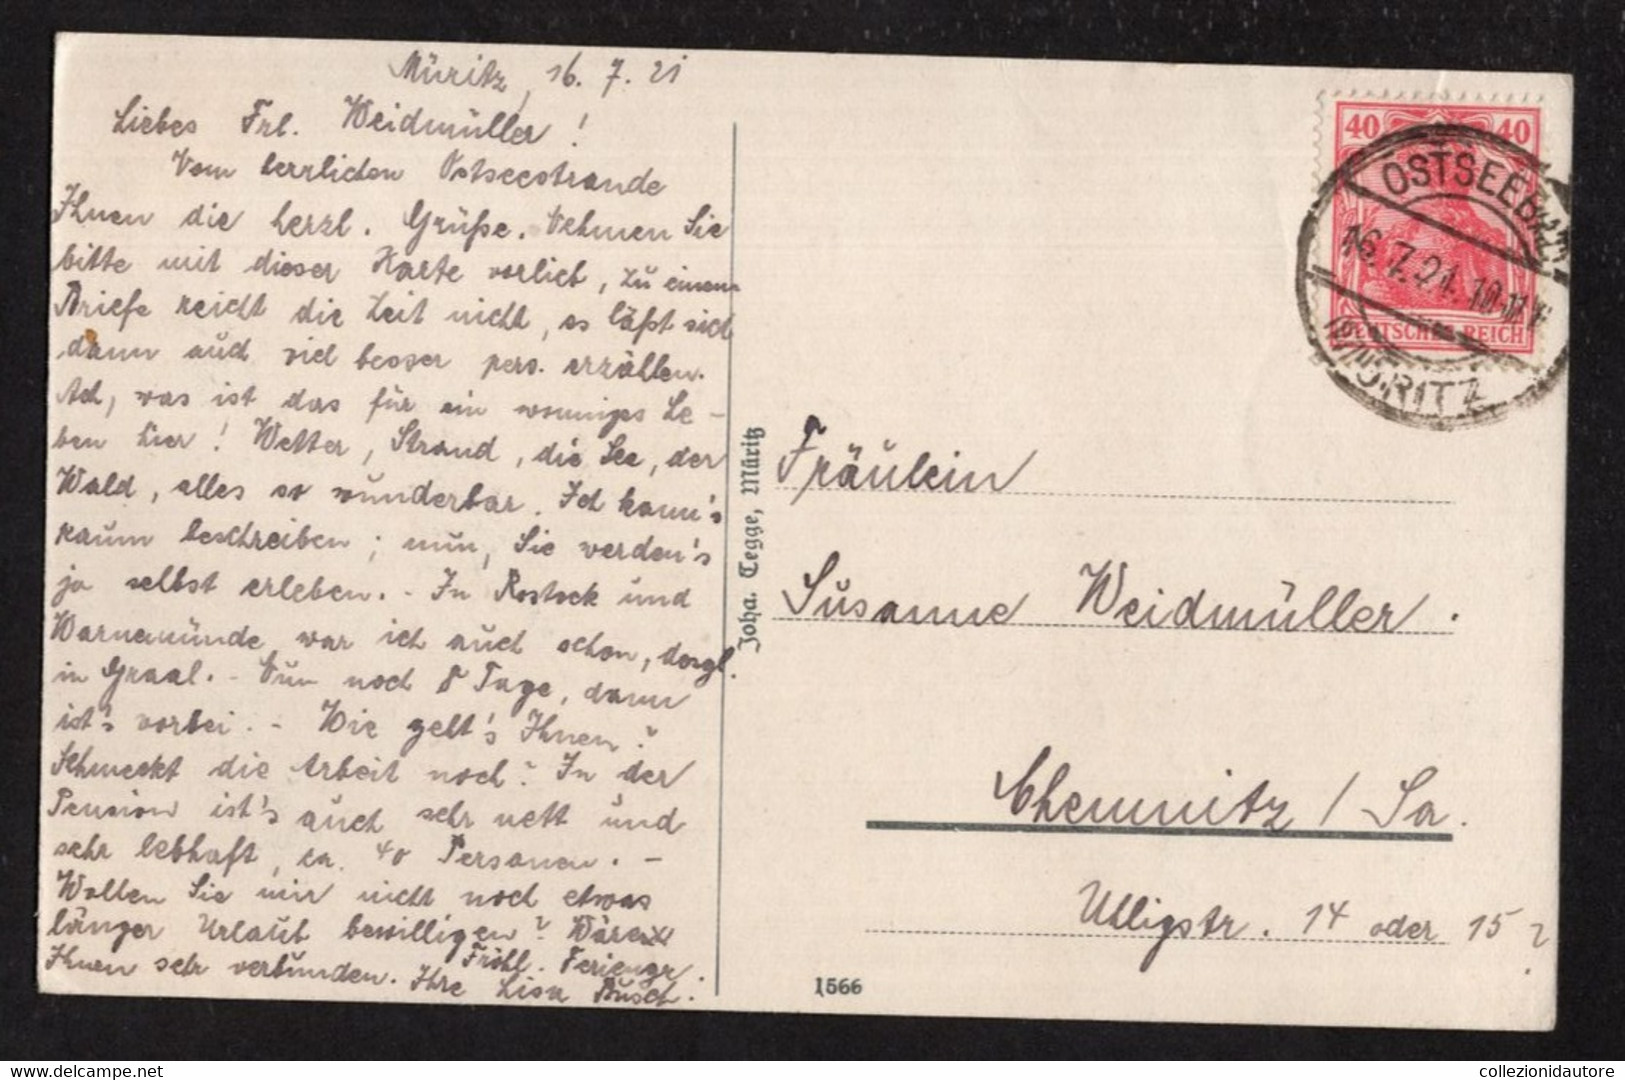 Müritz, 16. 7. 21
Liebes Frl. Weidmüller!
Vom herrlichen Ostseestrande
Ihnen die herzl. Grüße. Nehmen Sie
bitte mit dieser Karte vorlieb, zu einem
Briefe reicht die Zeit nicht, es läßt sich
dann auch viel besser pers. erzählen.
Ach, was ist das für ein wonniges Le-
ben hier! Wetter, Strand, die See, der
Wald, alles so wunderbar. Ich kann's
kaum beschreiben; nun, Sie werden's
ja selbst erleben. - In Rostock und
Warnemünde war ich auch schon, desgl.
in Graal. - Nun noch 8 Tage, dann
ist's vorbei. - Wie geht's Ihnen?
Schmeckt die Arbeit noch? In der
Pension ist's auch sehr nett und
sehr lebhaft, ca. 40 Personen. -
Wollen Sie mir nicht noch etwas
länger Urlaub bewilligen? Wäre
Ihnen sehr verbunden. Fröhl. Feriengr.
Ihre Lisa Busch.
Joha. Tegge, Müritz
40 40
DEUTSCHES REICH
OSTSEEBAD
16.7.21. 10-11V
MÜRITZ
Fräulein
Susanne Weidmüller.
Chemnitz / Sa.
Uhligstr. 14 oder 15?
1566
collezionidautore